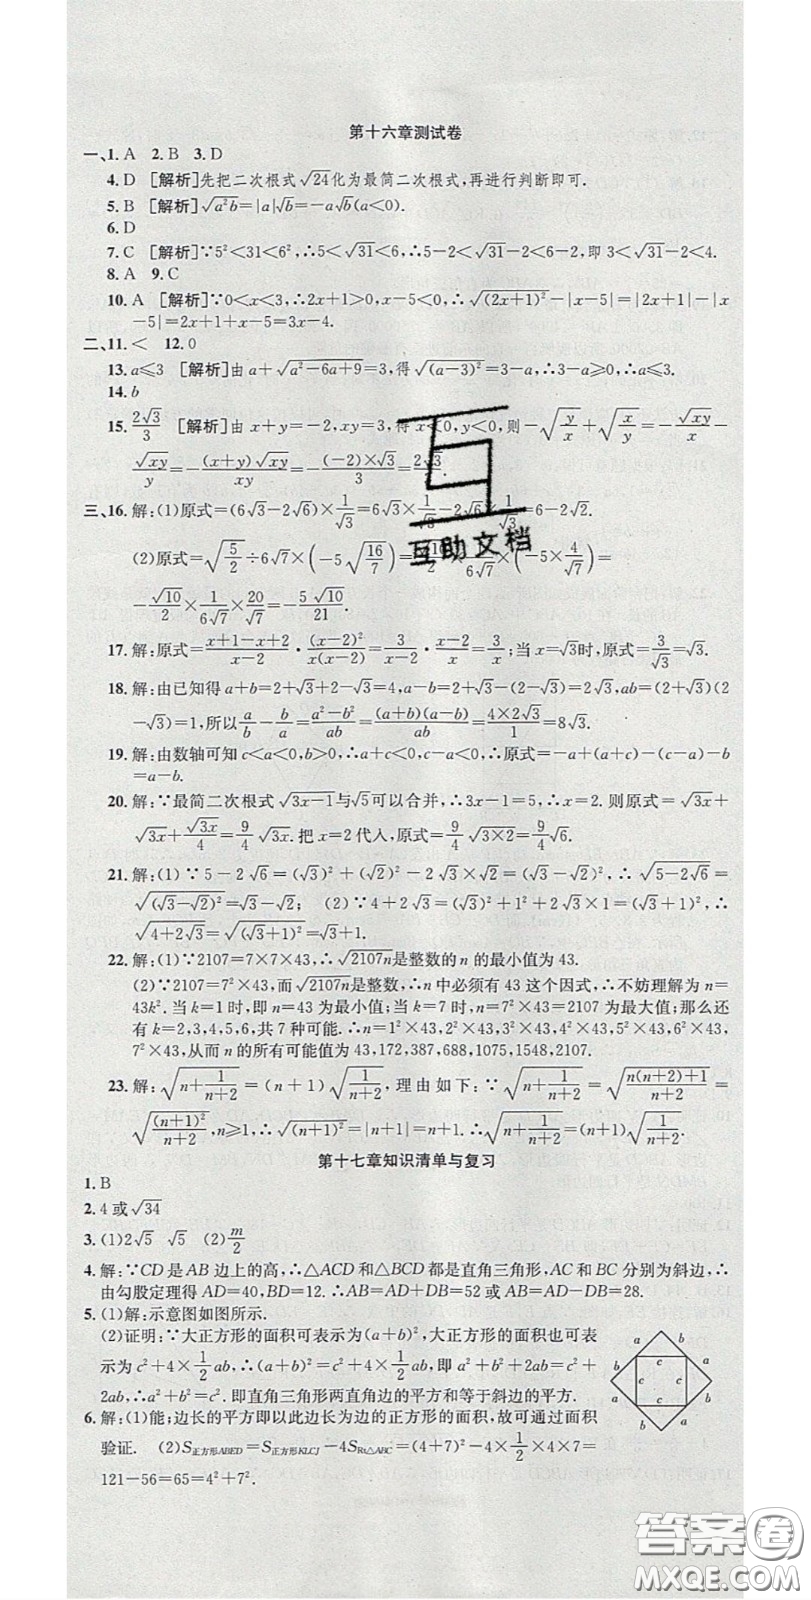 第十六章测试卷
一、1. A 2. B 3. D
4. D [解析]先把二次根式√24化为最简二次根式,再进行判断即可.
5. B [解析]√(a²b)=|a|√b=-a√b(a<0).
6. D
7. C [解析]∵5²<31<6²,∴5<√31<6,∴5-2<√31-2<6-2,即 3<√31-2<4.
8. A 9. C
10. A [解析]∵0<x<3,∴2x+1>0,x-5<0,∴√((2x+1)²)-|x-5|=|2x+1|-|x
-5|=2x+1+x-5=3x-4.
二、11. < 12. 0
13. a≤3 [解析]由 a+√(a²-6a+9)=3,得√((a-3)²)=3-a,∴3-a≥0,∴a≤3.
14. b
15. 2√3/3 [解析]由 x+y=-2,xy=3,得 x<0,y<0,则-√(y/x)+√(x/y)=-√(xy)/x-
√(xy)/y=-(x+y)√(xy)/xy=-(-2)×√3/3=2√3/3.
三、16. 解:(1)原式=(6√3-2√6)×1/√3=6√3×1/√3-2√6×1/√3=6-2√2.
(2)原式=√(5/2)÷6√7×(-5√(16/7))=√10/2×1/(6√7)×(-5×4/√7)=
-√10/2×1/(6√7)×20/√7=-5√10/21.
17. 解:原式=(x+1-x+2)/(x-2)·(x-2)²/(x(x-2))=3/(x-2)·(x-2)/x=3/x;当 x=√3时,原式=3/√3=√3.
18. 解:由已知得 a+b=2+√3+2-√3=4,a-b=2+√3-(2-√3)=2√3,ab=(2+√3)(2
-√3)=1,所以a/b-b/a=(a²-b²)/ab=(a+b)(a-b)/ab=4×2√3/1=8√3.
19. 解:由数轴可知 c<a<0,b>0,∴a+c<0,c-a<0,∴原式=-a+(a+c)-(c-a)-b
=a-b.
20. 解:∵最简二次根式√(3x-1)与√5可以合并,∴3x-1=5,∴x=2. 则原式=√(3x)+
√(3x)+√(3x)/4=9/4√(3x). 把 x=2 代入,原式=9/4√(3×2)=9/4√6.
21. 解:(1)∵5-2√6=(√3)²+(√2)²-2√3×√2=(√3-√2)²,∴√(5-2√6)=
√((√3-√2)²)=√3-√2; (2)∵4+2√3=(√3)²+1²+2√3×1=(√3+1)²,∴
√(4+2√3)=√((√3+1)²)=√3+1.
22. 解:(1)∵2107=7×7×43,∴√(2107n)是整数的 n 的最小值为 43.
(2)∵2107=7²×43,而√(2107n)是整数,∴n 中必须有 43 这个因式,不妨理解为 n=
43k². 当 k=1 时,即 n=43 为最小值;当 k=7 时,n=7²×43=2107 为最大值;那么还
有 k=2,3,4,5,6,共 7 种可能.∴n=1²×43,2²×43,3²×43,4²×43,5²×43,6²×43,
7²×43,从而 n 的所有可能值为 43,172,387,688,1075,1548,2107.
23. 解:√(n+1/(n+2))=(n+1)√(1/(n+2)),理由如下:∵√(n+1/(n+2))=√((n(n+2)+1)/(n+2))=
√((n+1)²/(n+2)),n≥1,∴√((n+1)²)=|n+1|=n+1.∴√(n+1/(n+2))=(n+1)√(1/(n+2)).
第十七章知识清单与复习
1. B
2. 4 或√34
3. (1)2√5 √5 (2)m/2
4. 解:∵CD 是 AB 边上的高,∴△ACD 和△BCD 都是直角三角形,AC 和 BC 分别为斜边,∴
由勾股定理得 AD=40,BD=12.∴AB=AD+DB=52 或 AB=AD-DB=28.
5. (1)解:示意图如图所示.
(2)证明:∵大正方形的面积可表示为(a+b)²,大正方形的面积也可表
示为 c²+4×1/2ab,∴(a+b)²=c²+4×1/2ab,即 a²+b²+2ab=c²+
2ab,∴a²+b²=c². 即直角三角形两直角边的平方和等于斜边的平方.
a b
b a
c
c c
c
a b
b a
6. 解:(1)能;边长的平方即以此边长为边的正方形的面积,故可通过面积
验证. (2)S正方形ABED=S正方形KLCJ-4SRt△ABC=(4+7)²-4×1/2×4×7=
121-56=65=4²+7².
互助文档
答案圈
MXQE.COM